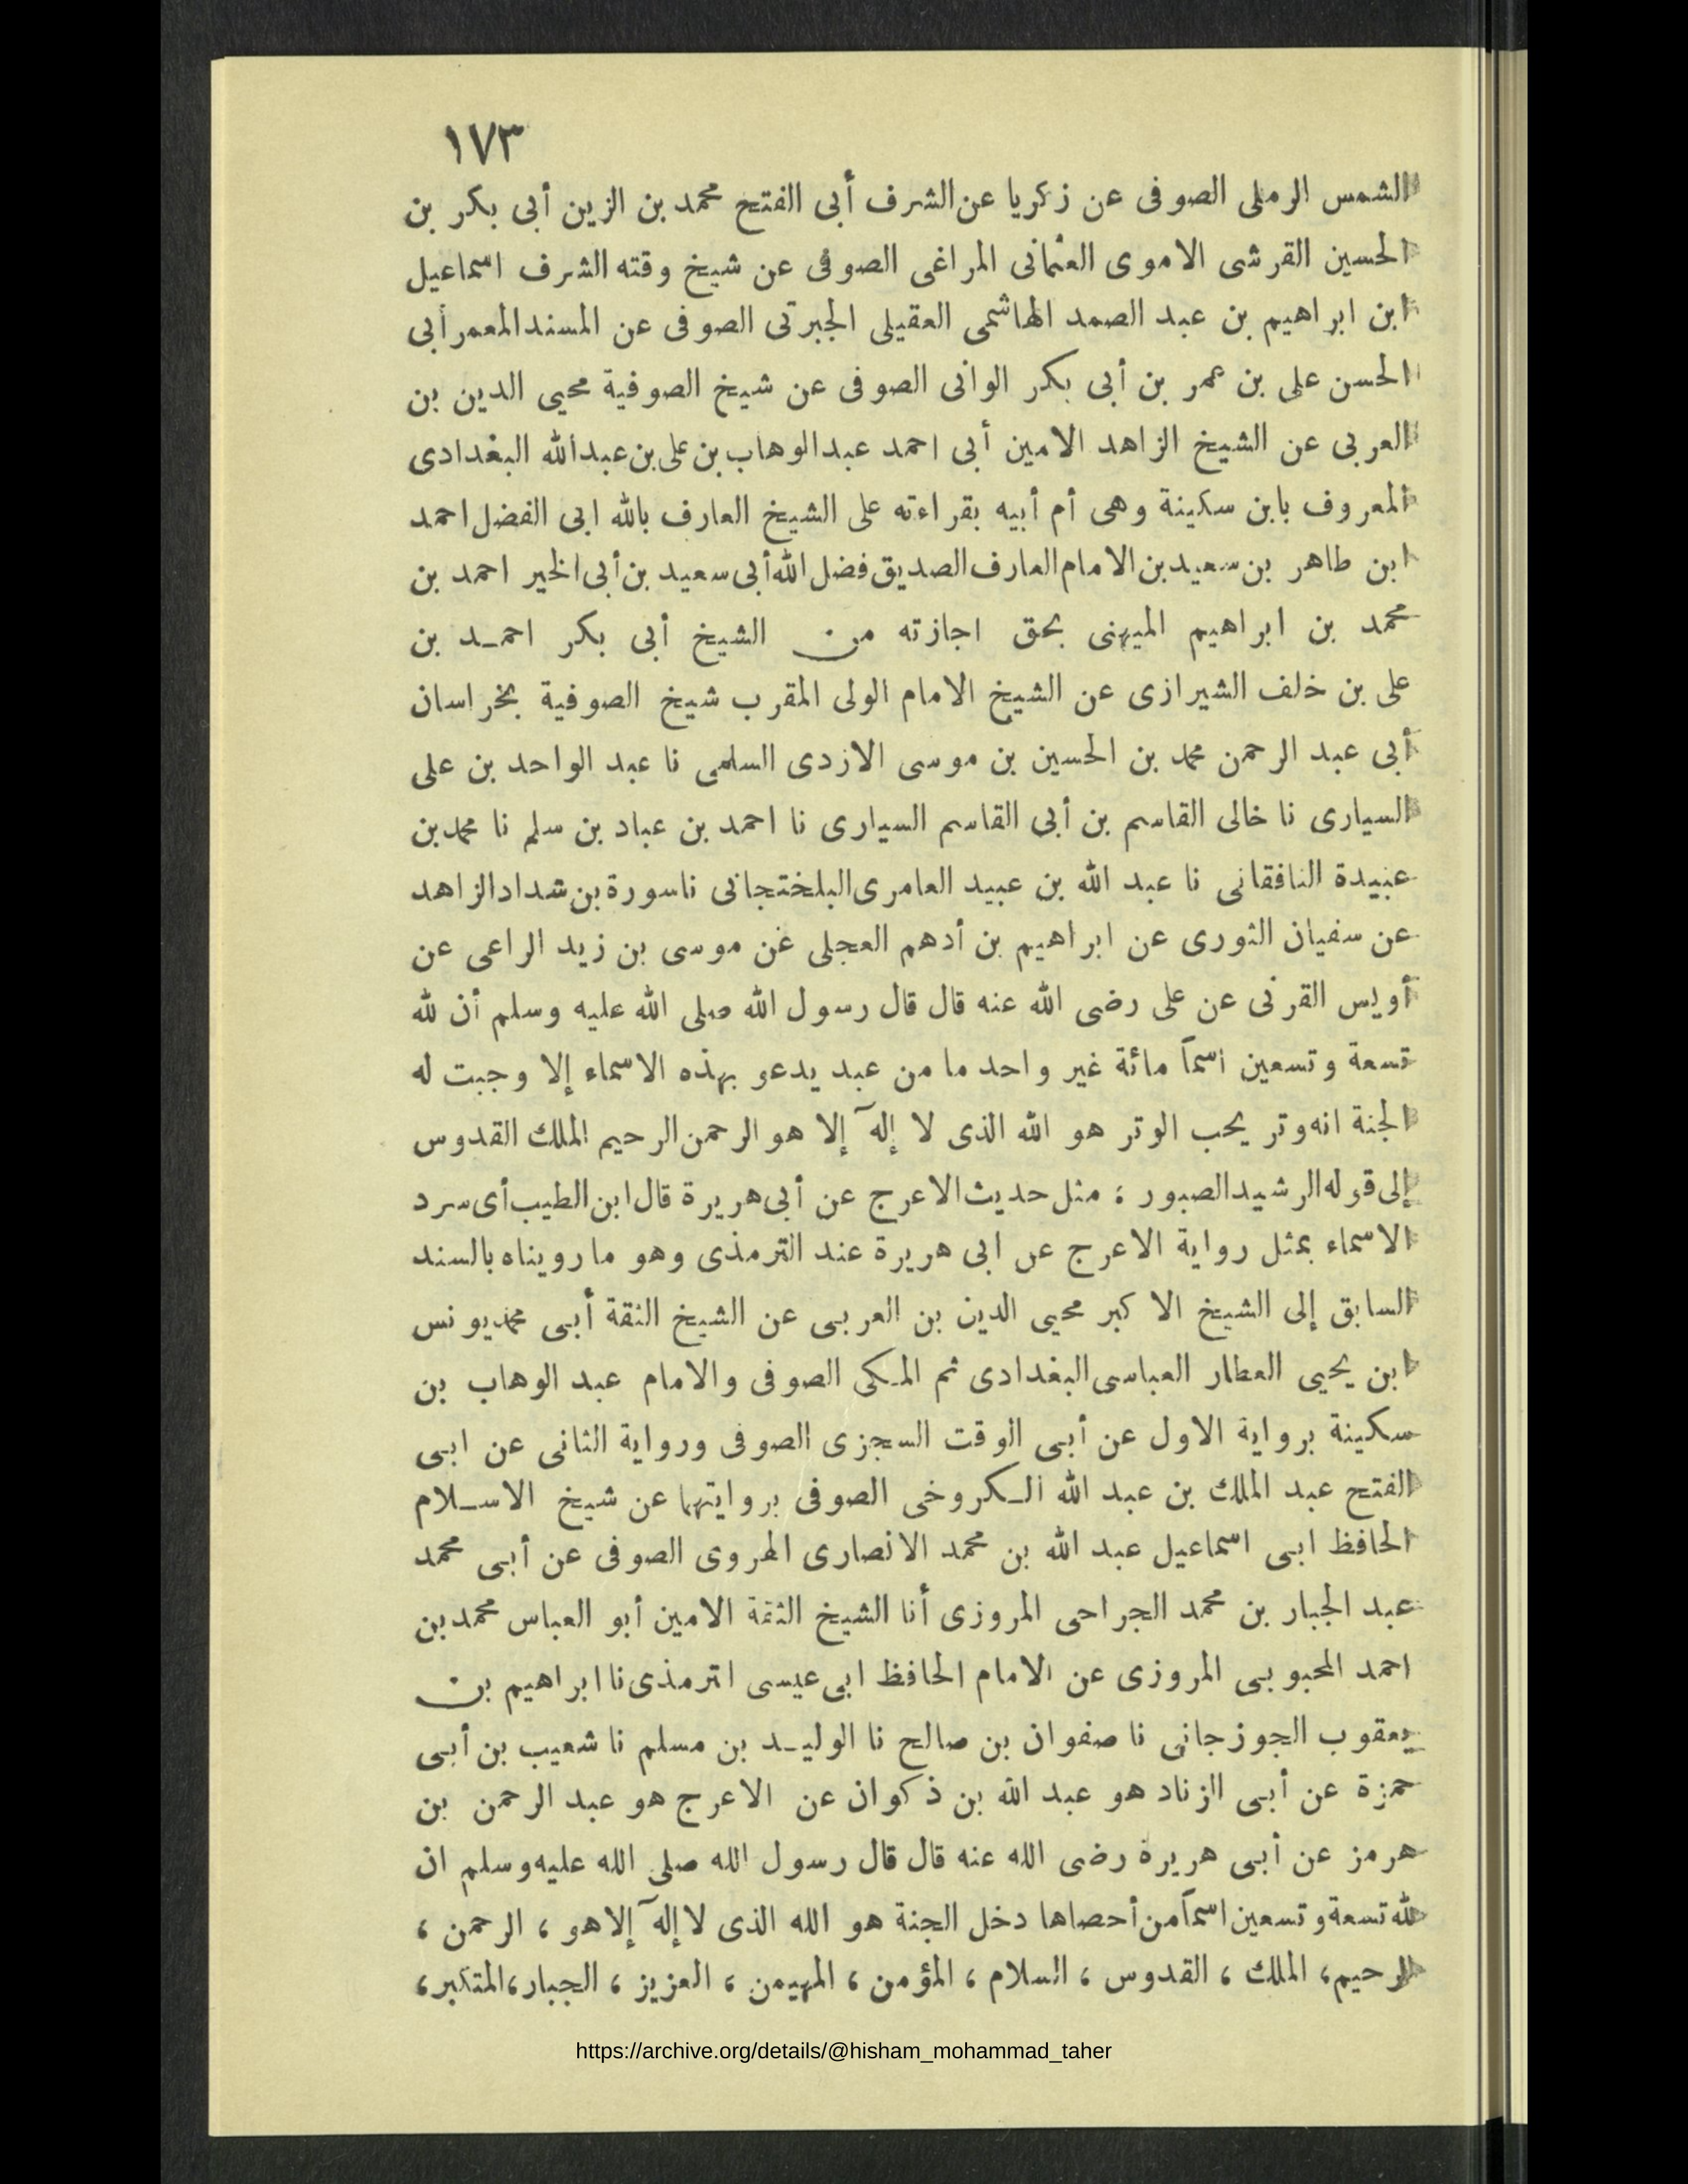 ١٧٣
الشمس الرملى الصوفى عن زكريا عن الشرف أبى الفتح محمد بن الزين أبى بكر بن
الحسين القرشى الاموى العثمانى المراغى الصوفى عن شيخ وقته الشرف اسماعيل
ابن ابراهيم بن عبد الصمد الهاشمى العقيلى الجبرتى الصوفى عن المسند المعمر أبى
الحسن على بن عمر بن أبى بكر الوانى الصوفى عن شيخ الصوفية محيى الدين بن
العربى عن الشيخ الزاهد الامين أبى احمد عبد الوهاب بن على بن عبد الله البغدادى
المعروف بابن سكينة وهى أم أبيه بقراءته على الشيخ العارف بالله ابى الفضل احمد
ابن طاهر بن سعيد بن الامام العارف الصديق فضل الله أبى سعيد بن أبى الخير احمد بن
محمد بن ابراهيم الميهنى بحق اجازته من الشيخ أبى بكر احمد بن
على بن خلف الشيرازى عن الشيخ الامام الولى المقرب شيخ الصوفية بخراسان
أبى عبد الرحمن محمد بن الحسين بن موسى الازدى السلمى نا عبد الواحد بن على
السيارى نا خالى القاسم بن أبى القاسم السيارى نا احمد بن عباد بن سلم نا محمد بن
عنبيدة النافقانى نا عبد الله بن عبيد العامرى البلختجانى نا سورة بن شداد الزاهد
عن سفيان الثورى عن ابراهيم بن أدهم العجلى عن موسى بن زيد الراعى عن
أويس القرنى عن على رضى الله عنه قال قال رسول الله صلى الله عليه وسلم أن لله
تسعة وتسعين اسماً مائة غير واحد ما من عبد يدعو بهذه الاسماء إلا وجبت له
الجنة انه وتر يحب الوتر هو الله الذى لا إله إلا هو الرحمن الرحيم الملك القدوس
إلى قوله الرشيد الصبور : مثل حديث الاعرج عن أبى هريرة قال ابن الطيب أى سرد
الاسماء بمثل رواية الاعرج عن ابى هريرة عند الترمذى وهو ما رويناه بالسند
السابق إلى الشيخ الاكبر محيى الدين بن العربى عن الشيخ الثقة أبى محمد يونس
ابن يحيى العطار العباسى البغدادى ثم المكى الصوفى والامام عبد الوهاب بن
سكينة برواية الاول عن أبى الوقت السجزى الصوفى ورواية الثانى عن ابى
الفتح عبد الملك بن عبد الله الكروخى الصوفى بروايتهما عن شيخ الاسلام
الحافظ ابى اسماعيل عبد الله بن محمد الانصارى الهروى الصوفى عن أبى محمد
عبد الجبار بن محمد الجراحى المروزى أنا الشيخ الثقة الامين أبو العباس محمد بن
احمد المحبوبى المروزى عن الامام الحافظ ابى عيسى اترمذى نا ابراهيم بن
يعقوب الجوزجانى نا صفوان بن صالح نا الوليد بن مسلم نا شعيب بن أبى
حمزة عن أبى الزناد هو عبد الله بن ذكوان عن الاعرج هو عبد الرحمن بن
هرمز عن أبى هريرة رضى الله عنه قال قال رسول الله صلى الله عليه وسلم ان
لله تسعة وتسعين اسماً من أحصاها دخل الجنة هو الله الذى لا إله إلا هو ، الرحمن ،
الرحيم، الملك ، القدوس ، السلام ، المؤمن ، المهيمن ، العزيز ، الجبار، المتكبر،
https://archive.org/details/@hisham_mohammad_taher